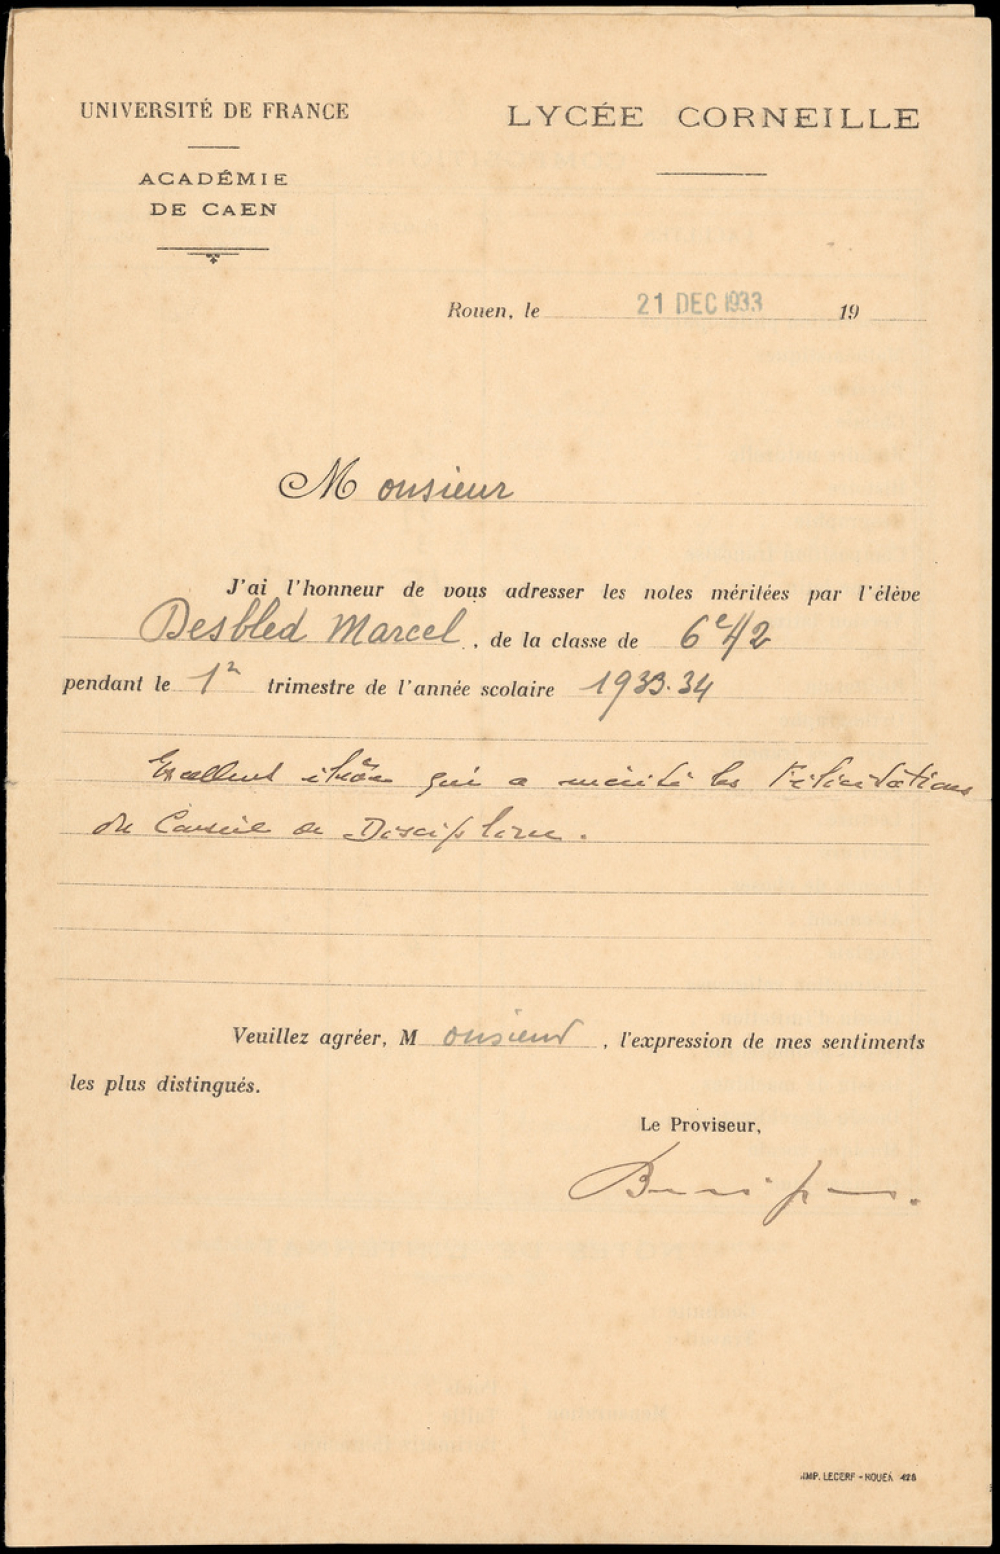 UNIVERSITÉ DE FRANCE
LYCÉE CORNEILLE
ACADÉMIE
DE CAEN
Rouen, le 21 DEC 1933 19
Monsieur
J'ai l'honneur de vous adresser les notes méritées par l'élève
Desbled Marcel, de la classe de 6e A2
pendant le 1er trimestre de l'année scolaire 1933.34
Excellent élève qui a mérité les Félicitations
du Conseil de Discipline.
Veuillez agréer, Monsieur, l'expression de mes sentiments
les plus distingués.
Le Proviseur,
IMP. LECERF - ROUEN 428